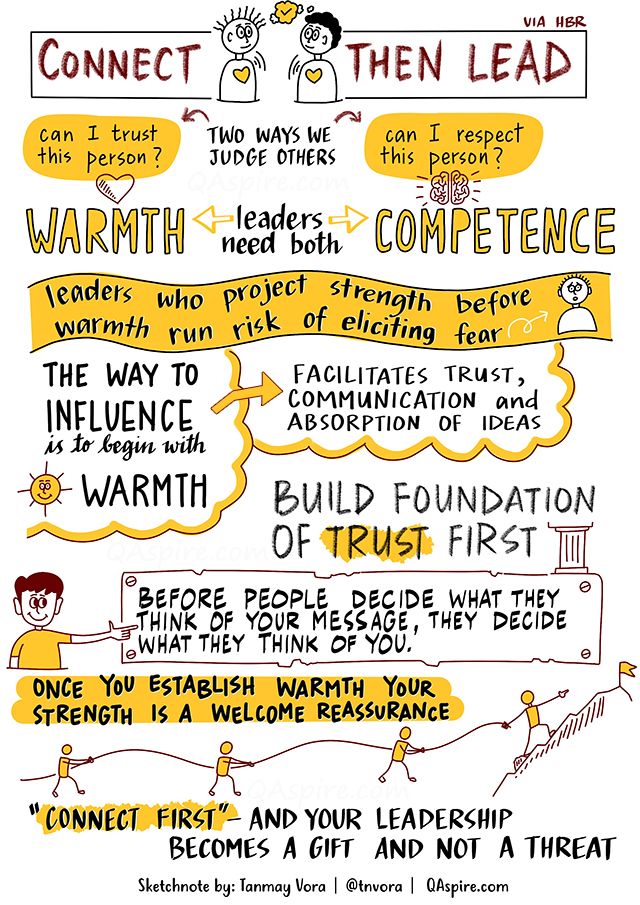 VIA HBR
CONNECT THEN LEAD
can I trust
this person?
TWO WAYS WE
JUDGE OTHERS
can I respect
this person?
QAspire.com
WARMTH
leaders
need both
COMPETENCE
leaders who project strength before
warmth run risk of eliciting fear
THE WAY TO
INFLUENCE
is to begin with
WARMTH
FACILITATES TRUST,
COMMUNICATION and
ABSORPTION OF IDEAS
BUILD FOUNDATION
OF TRUST FIRST
QAspire.com
BEFORE PEOPLE DECIDE WHAT THEY
THINK OF YOUR MESSAGE, THEY DECIDE
WHAT THEY THINK OF YOU.
ONCE YOU ESTABLISH WARMTH YOUR
STRENGTH IS A WELCOME REASSURANCE
QAspire.com
"CONNECT FIRST" - AND YOUR LEADERSHIP
BECOMES A GIFT AND NOT A THREAT
Sketchnote by: Tanmay Vora | @tnvora | QAspire.com